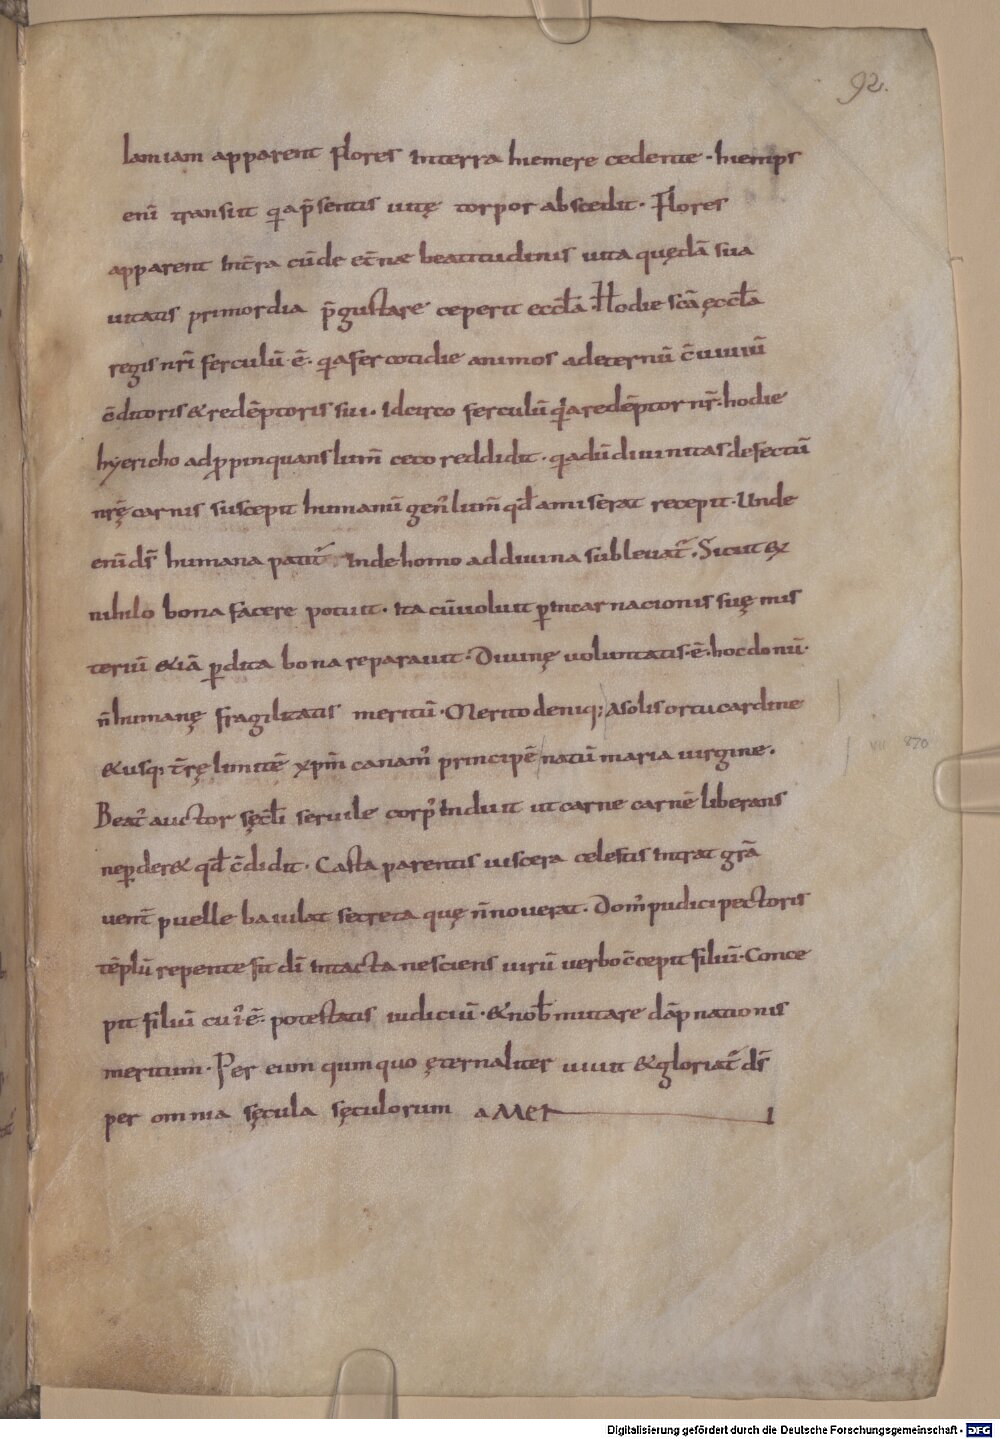 92.
lam iam apparent flores interra hiemere cedente · hiemps
eni̅ transiit qi̅a p̅sentis uitę torpor abscedit · Flores
apparent int̅ra cu̅de et̅nae beatitudinis uita quęda̅ sua
uitatis primordia p̅gustare ceperit eccl̅a · Hodie sc̅a ęccl̅a
regis nr̅i ferculu̅ e̅ · qi̅a fert cotidie animos adeternu̅ c̅uiuiu̅
c̅ditoris & rede̅ptoris sui · Idcirco ferculu̅ qi̅a rede̅ptor nr̅ · hodie
hyericho adp̅pinquans lum̅ ceco reddidit · qi̅a du̅ diuinitas defectu̅
nr̅ę carnis suscepit humanu̅ gen̅ lum̅ qd̅ amiserat recepit · Unde
eni̅ ds̅ humana patit̅ inde homo addiuina subleuat̅ · Sicut ex
nihilo bona facere potuit · ita cu̅ uoluit p̅ incarnacionis suę mis
teriu̅ & ia̅ p̅dita bona reparauit · Diuinę uoluntatis · e̅ · hoc donu̅ ·
n̅ humanę fragilitatis meritu̅ · Merito deniq; Asolis ortu cardine
& usq; t̅rę limite̅ xpm̅ canam̅ principe̅ natu̅ maria uirgine ·
Beat̅ auctor sęcl̅i seruile corp̅ induit ut carne carne̅ liberans
ne p̅der& qd̅ c̅didit · Casta parentis uiscera celestis intrat gr̅a
uent̅ puelle baiulat secreta quę n̅ nouerat · Dom̅ pudici pectoris
te̅plu̅ repente fit di̅ intacta nesciens uiru̅ uerbo c̅cepit filiu̅ · Conce
pit filiu̅ cui̅ · e̅ · potestatis iudiciu̅ · & nob̅ mutare da̅pnationis
meritum · Per eum qum quo ęternaliter uiuit & gloriat̅ ds̅
per omnia sęcula sęculorum aMeN
VII 870
Digitalisierung gefördert durch die Deutsche Forschungsgemeinschaft - DFG